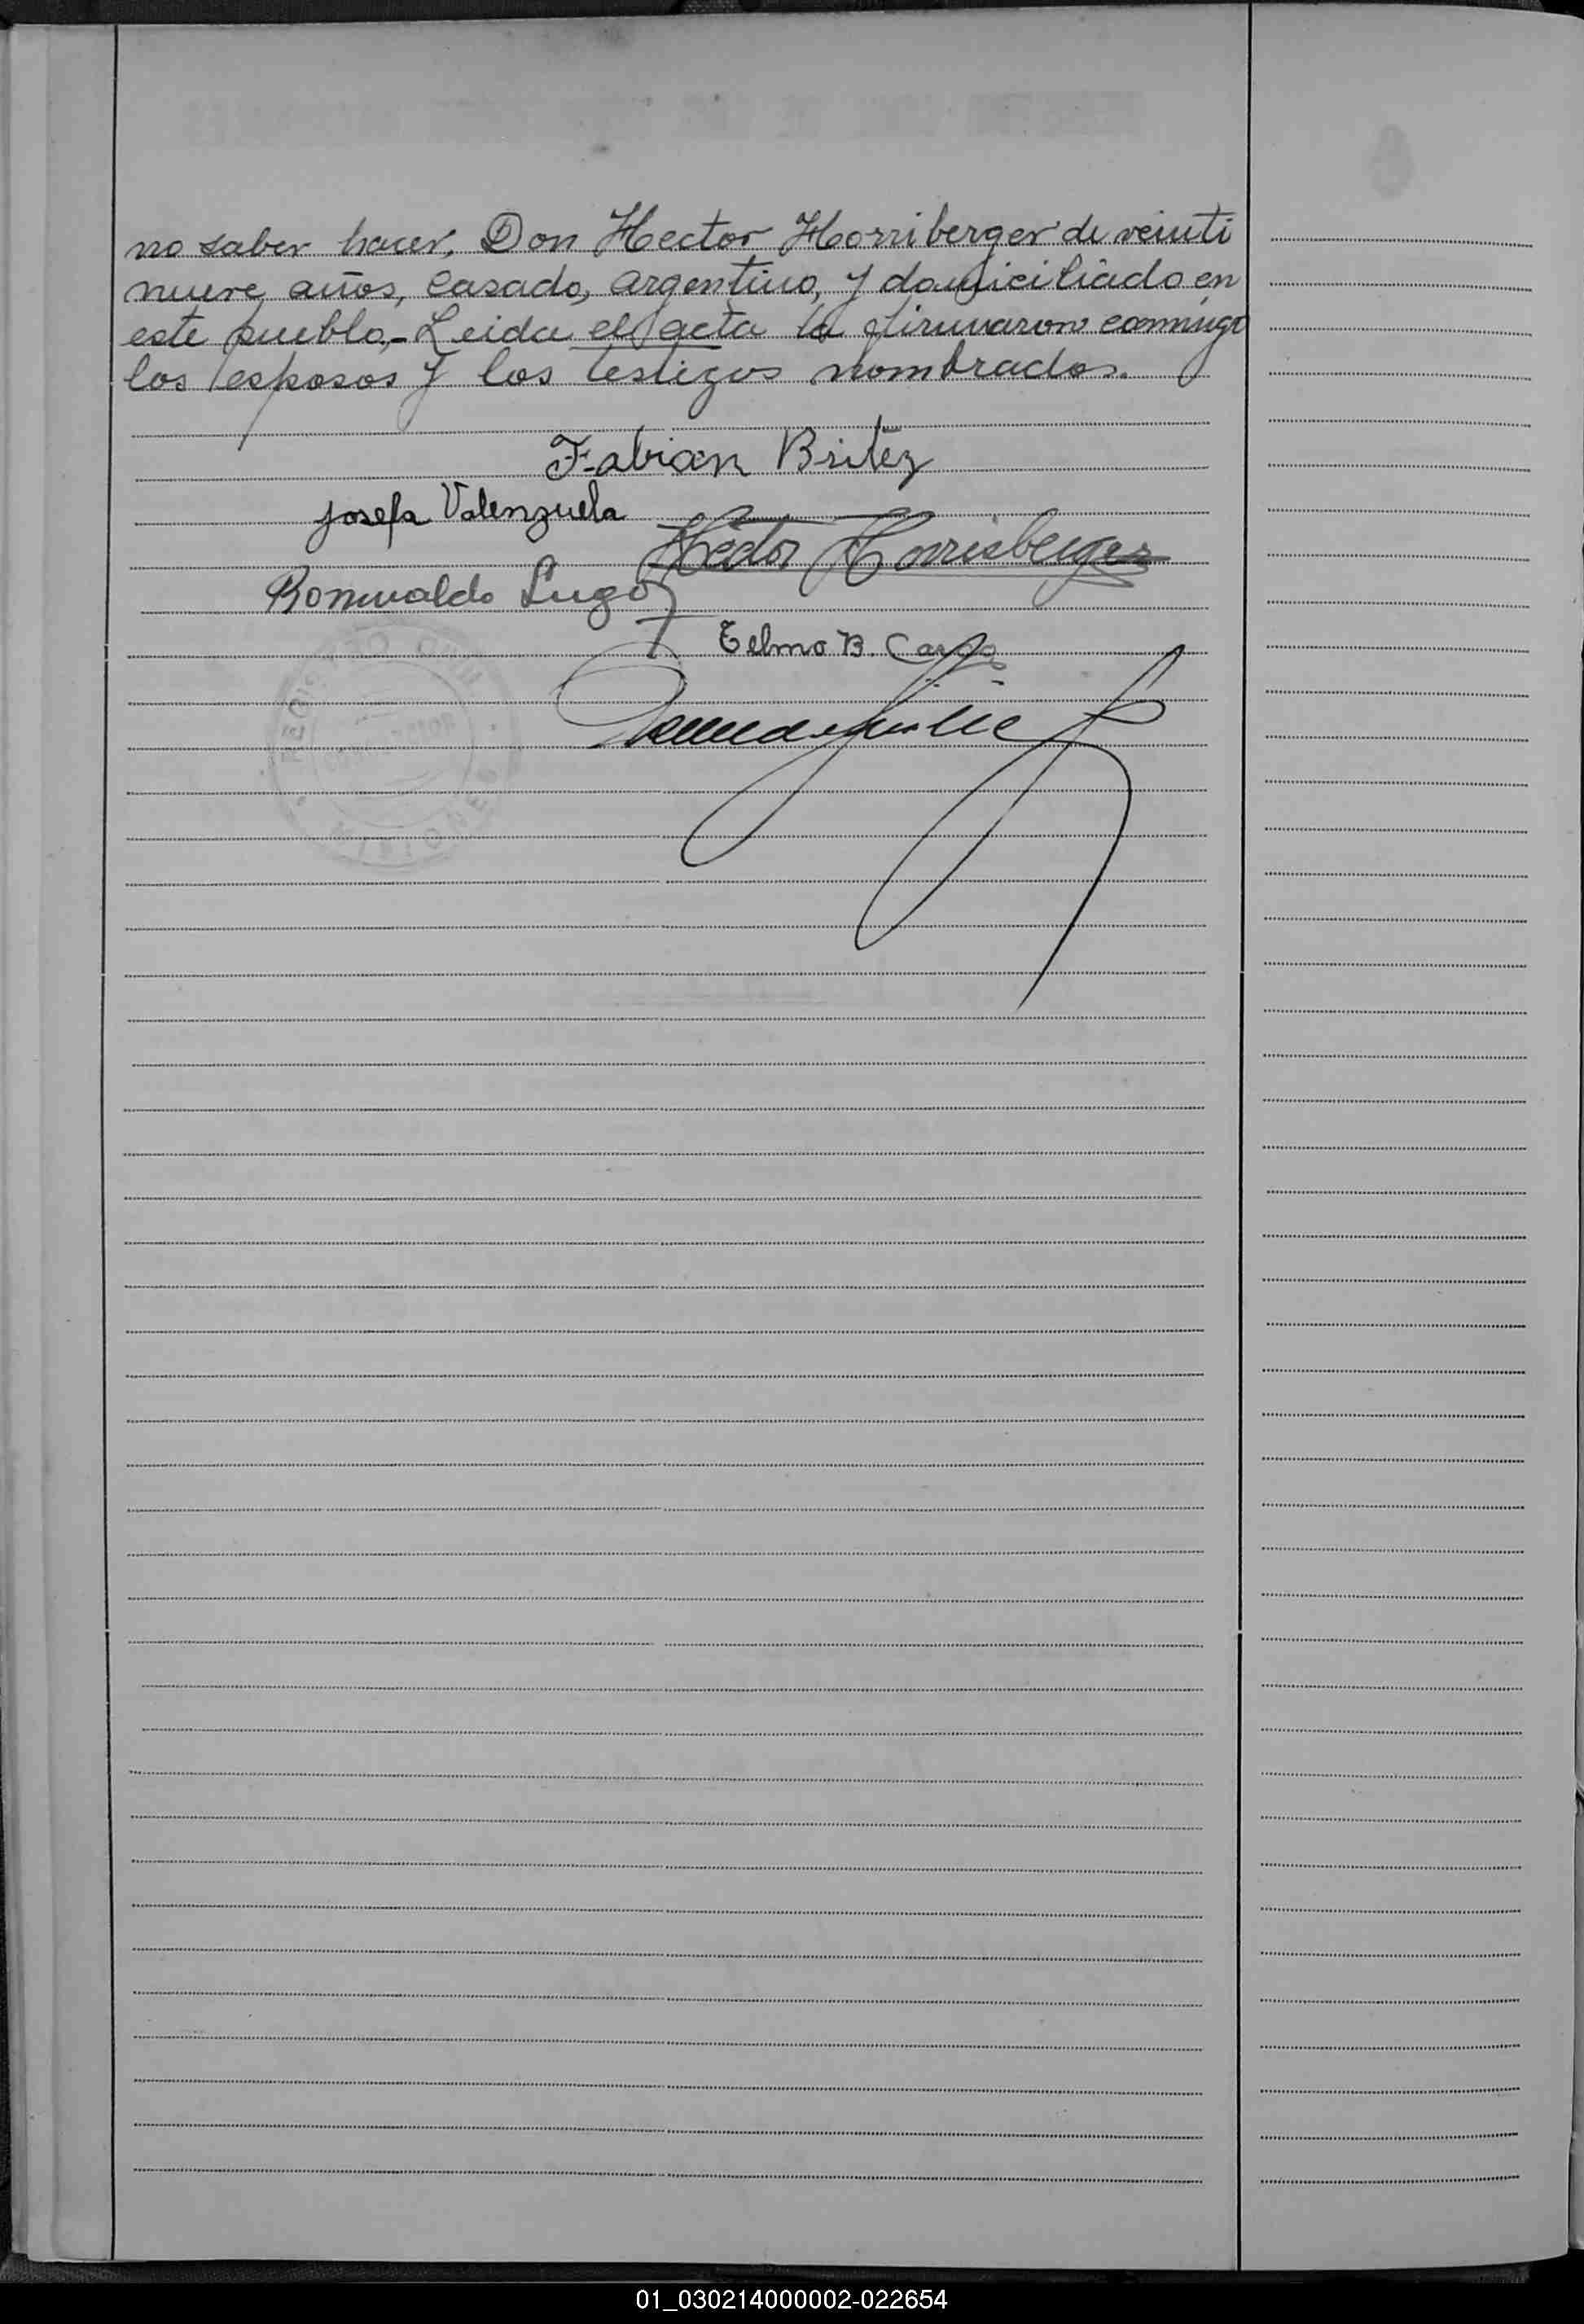 no saber hacer, Don Hector Horriberger de veinti
nueve años, casado, argentino, y domiciliado en
este pueblo,- Leida el acta la firmaron conmigo
los esposos y los testigos nombrados.
Fabian Britez
Josefa Valenzuela
Hector Horrisberger
Romualdo Lugo
Telmo B.
MISIONES
01_030214000002-022654